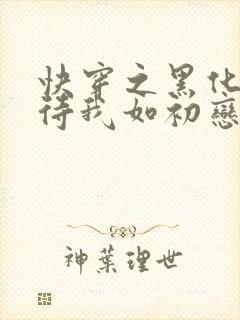 快穿之黑化
待我如初戀
神葉理世